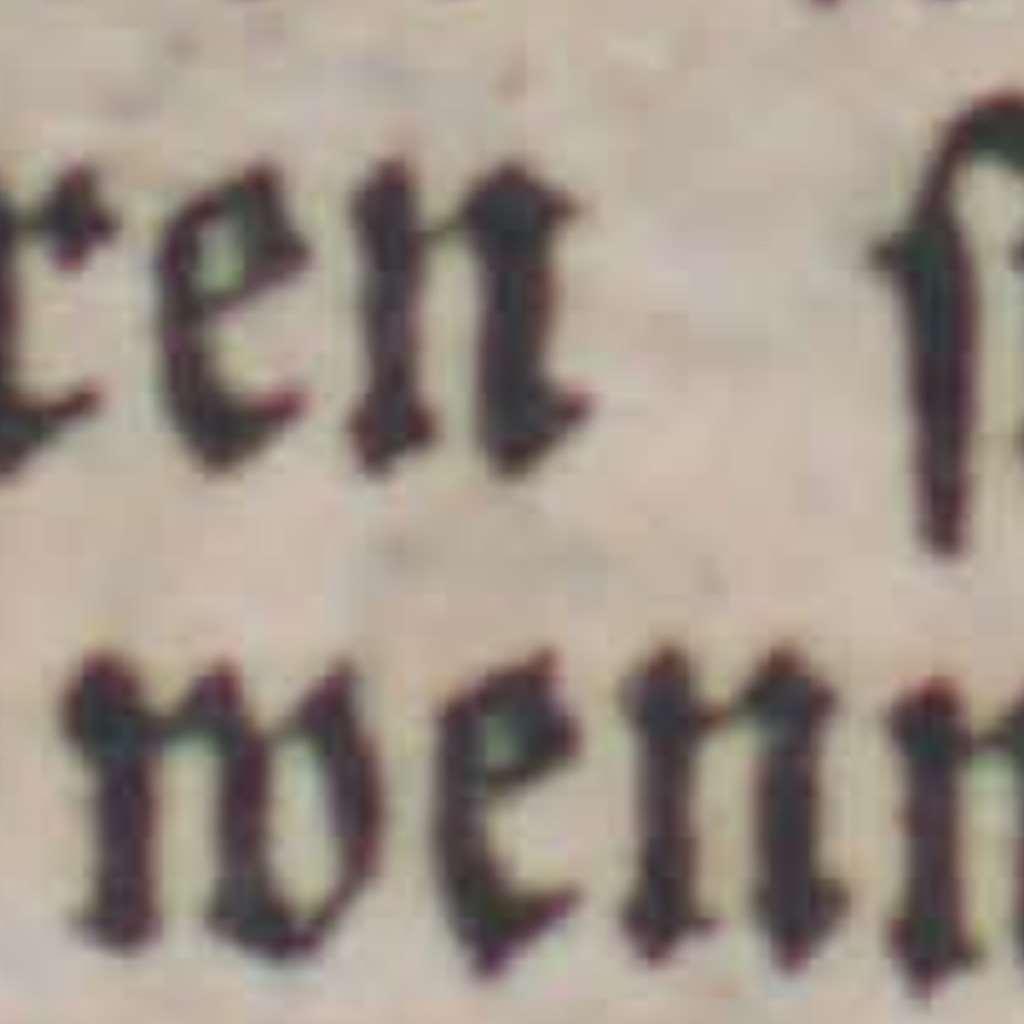 ren ſ
wenn